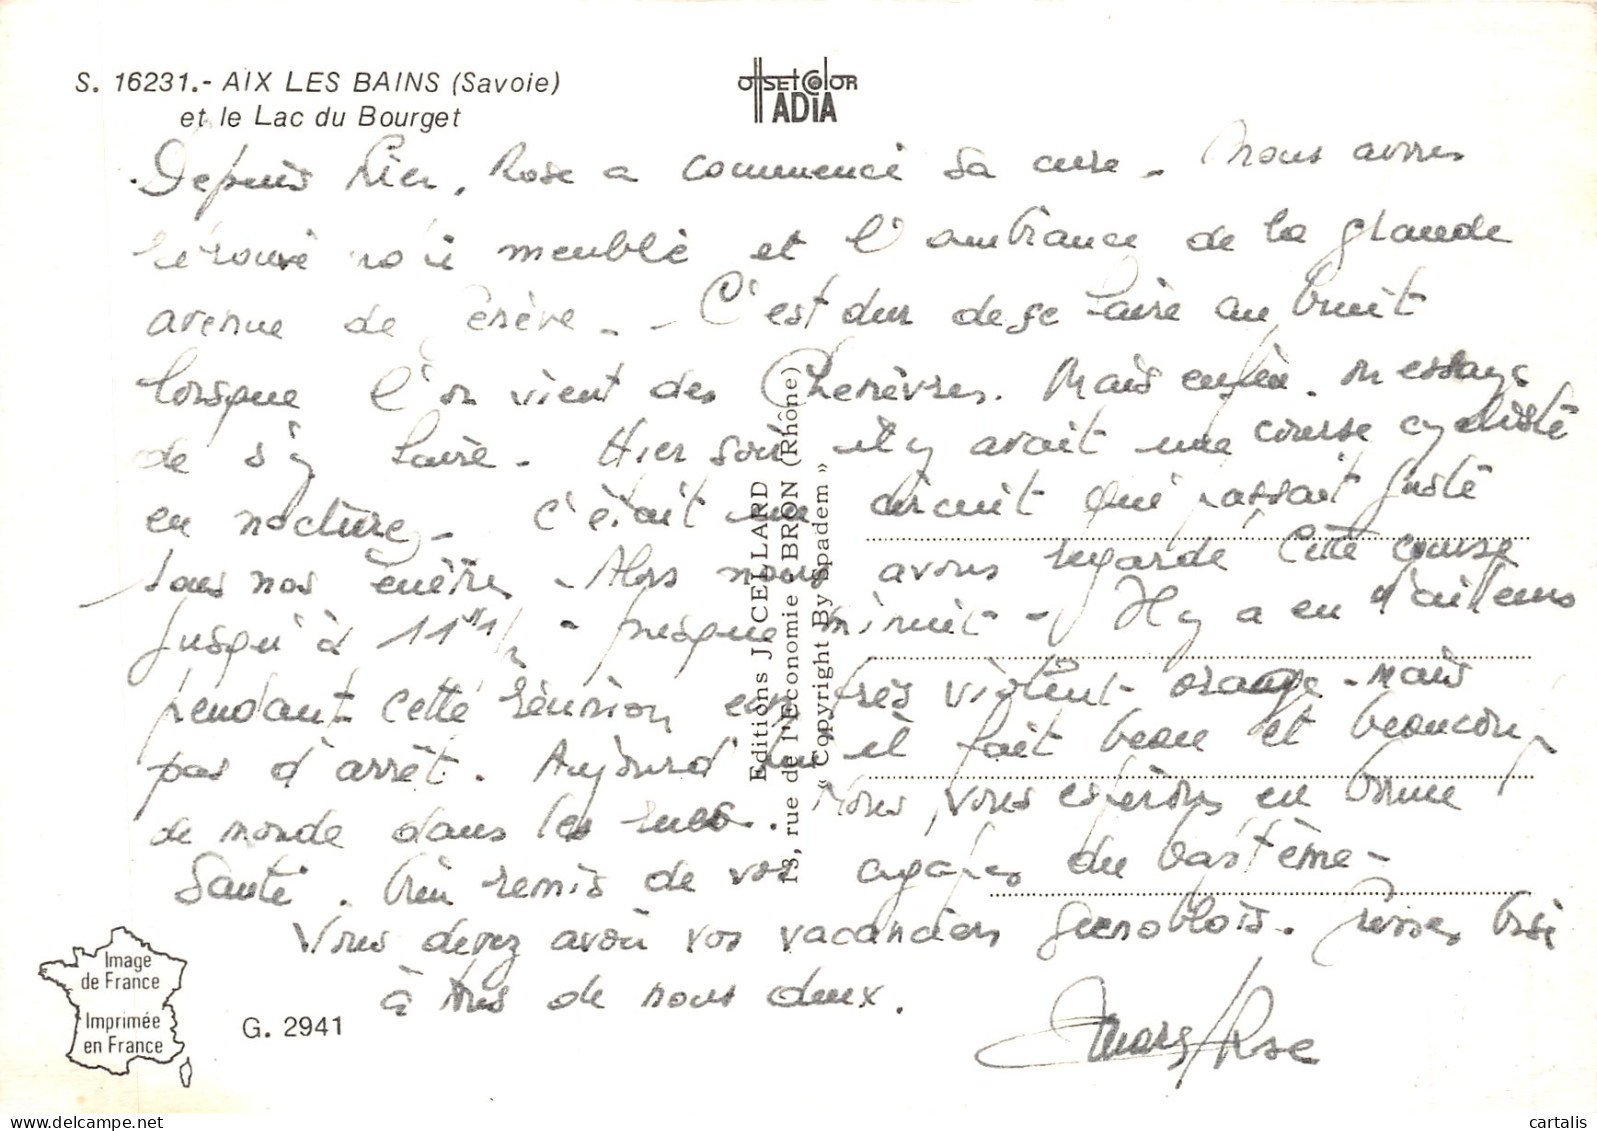 S. 16231.- AIX LES BAINS (Savoie)
et le Lac du Bourget
OffSETCOlOR
ADIA
Depuis hier, Rose a commencé sa cure. Nous avons
retrouvé notre meublé et l'ambiance de la grande
avenue de Genève. - C'est dur de se faire au bruit
lorsque l'on vient des Chenèvres. Mais enfin. on essaye
de s'y faire. Hier soir il y avait une course cycliste
en nocturne. C'était un circuit qui passait juste
sous nos fenêtres. Alors nous avons regardé cette course
jusqu'à 11h 1/2 - presque minuit - Il y a eu d'ailleurs
pendant cette réunion un très violent orage. mais
pas d'arrêt. Aujourd'hui il fait beau et beaucoup
de monde dans les rues. Nous vous espérons en bonne
Santé. bien remis de vos agapes du baptême -
Vous devez avoir vos vacanciers Grenoblois. Grosses bises
à tous de nous deux.
Rose
Editions J. CELLARD
13, rue de l'Economie - BRON (Rhône)
« Copyright By Spadem »
Image
de France
Imprimée
en France
G. 2941
cartalis